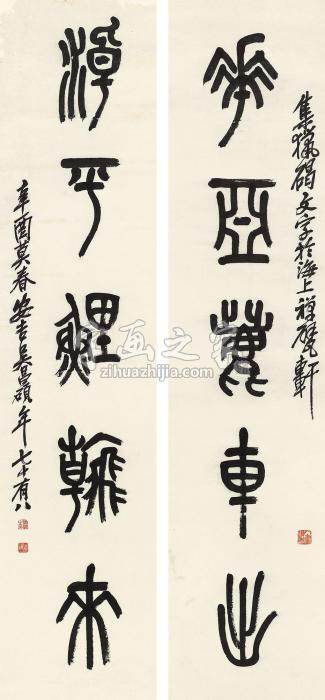 華亞車出
集獵碣文字於海上禪甓軒
潮平鯉翰來
辛酉莫春安吉吳昌碩年七十有八
画之家
zihuazhijia.com